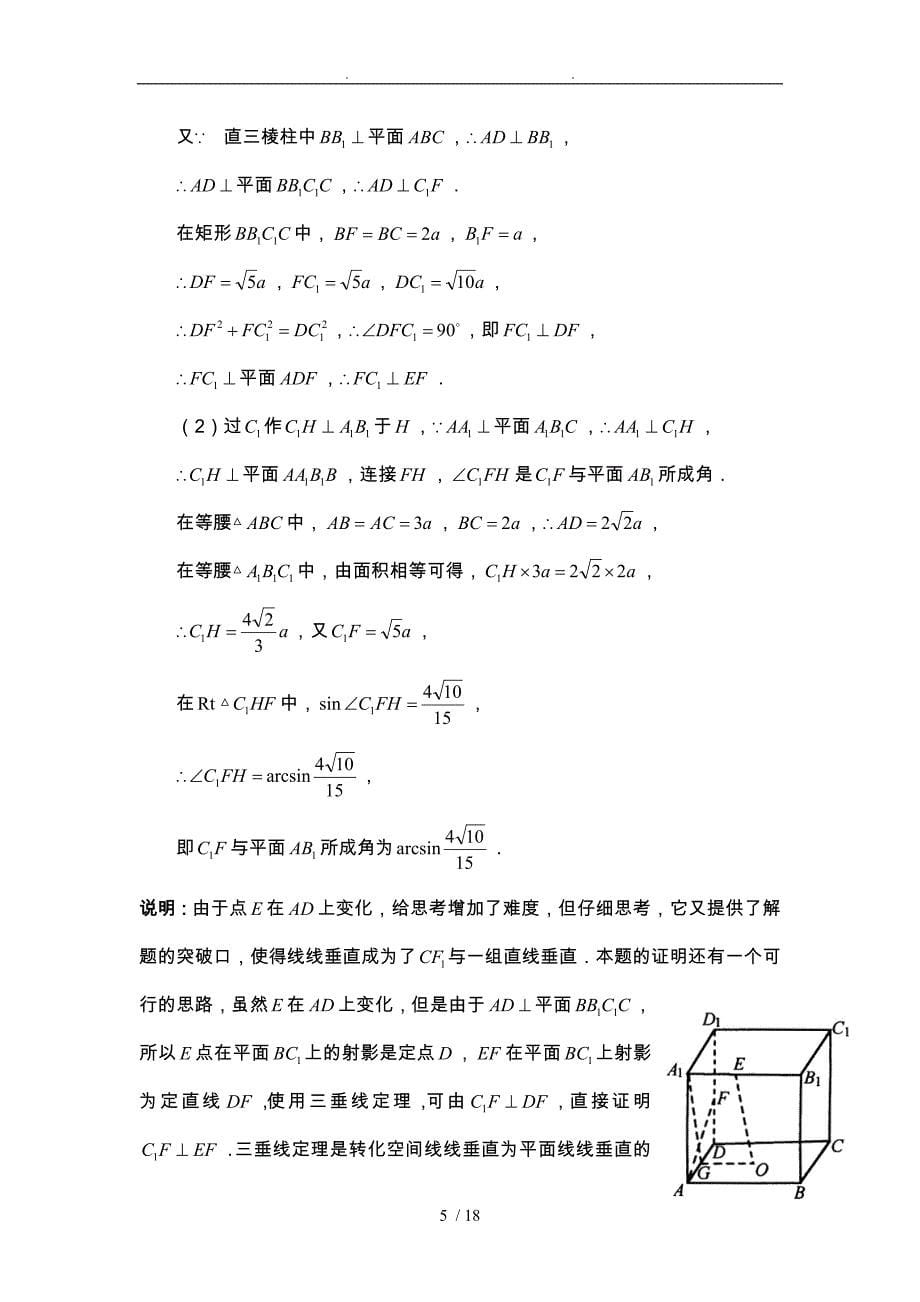 又∵ 直三棱柱中 BB₁ ⊥ 平面 ABC ，∴AD ⊥ BB₁ ，
∴AD ⊥ 平面 BB₁C₁C ，∴AD ⊥ C₁F ．
在矩形 BB₁C₁C 中，BF = BC = 2a ，B₁F = a ，
∴DF = √5a ，FC₁ = √5a ，DC₁ = √10a ，
∴DF² + FC₁² = DC₁² ，∴∠DFC₁ = 90° ，即 FC₁ ⊥ DF ，
∴FC₁ ⊥ 平面 ADF ，∴FC₁ ⊥ EF ．
（2）过 C₁ 作 C₁H ⊥ A₁B₁ 于 H ，∵ AA₁ ⊥ 平面 A₁B₁C ，∴AA₁ ⊥ C₁H ，
∴C₁H ⊥ 平面 AA₁B₁B ，连接 FH ，∠C₁FH 是 C₁F 与平面 AB₁ 所成角．
在等腰△ABC 中，AB = AC = 3a ，BC = 2a ，∴AD = 2√2a ，
在等腰△A₁B₁C₁ 中，由面积相等可得，C₁H × 3a = 2√2 × 2a ，
∴C₁H = 4√2/3 a ，又 C₁F = √5a ，
在 Rt△C₁HF 中，sin∠C₁FH = 4√10/15 ，
∴∠C₁FH = arcsin 4√10/15 ，
即 C₁F 与平面 AB₁ 所成角为 arcsin 4√10/15 ．
说明：由于点 E 在 AD 上变化，给思考增加了难度，但仔细思考，它又提供了解
题的突破口，使得线线垂直成为了 CF₁ 与一组直线垂直．本题的证明还有一个可
行的思路，虽然 E 在 AD 上变化，但是由于 AD ⊥ 平面 BB₁C₁C ，
所以 E 点在平面 BC₁ 上的射影是定点 D ，EF 在平面 BC₁ 上射影
为定直线 DF ，使用三垂线定理，可由 C₁F ⊥ DF ，直接证明
C₁F ⊥ EF ．三垂线定理是转化空间线线垂直为平面线线垂直的
D₁
C₁
A₁
E
B₁
F
D
C
G
O
A
B
5 / 18